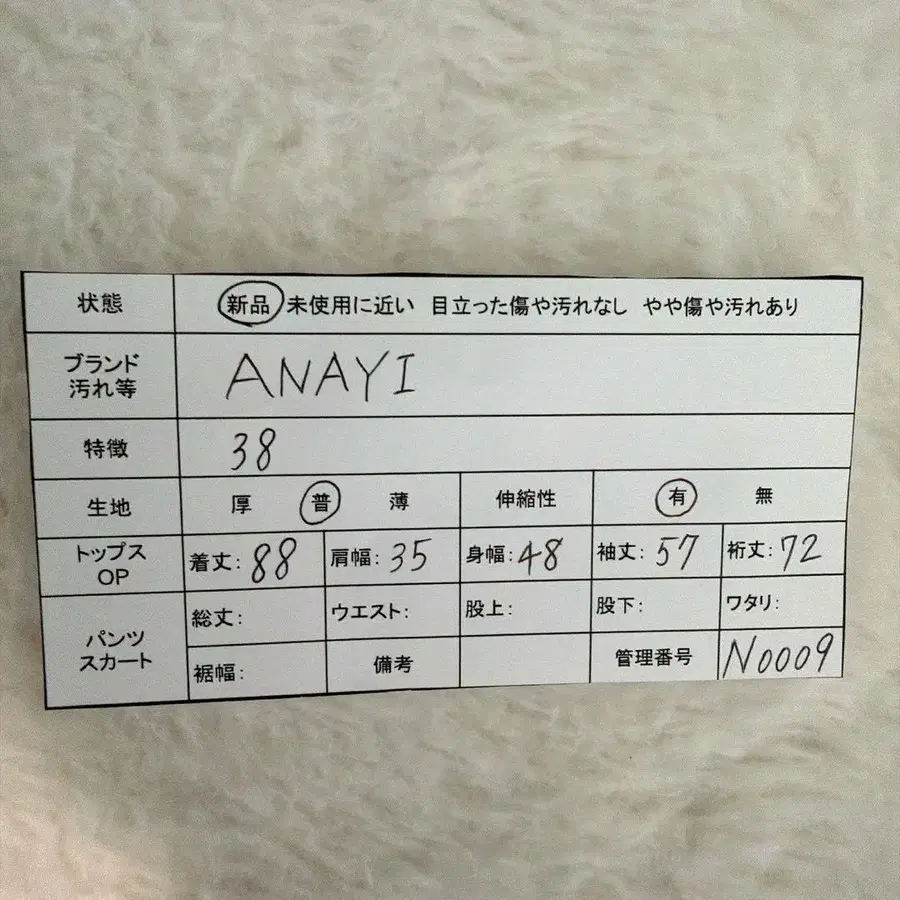 状態 新品 未使用に近い 目立った傷や汚れなし やや傷や汚れあり
ブランド
汚れ等 ANAYI
特徴 38
生地 厚 普 薄 伸縮性 有 無
トップス
OP 着丈:88 肩幅:35 身幅:48 袖丈:57 裄丈:72
パンツ
スカート 総丈: ウエスト: 股上: 股下: ワタリ:
裾幅: 備考 管理番号 N0009